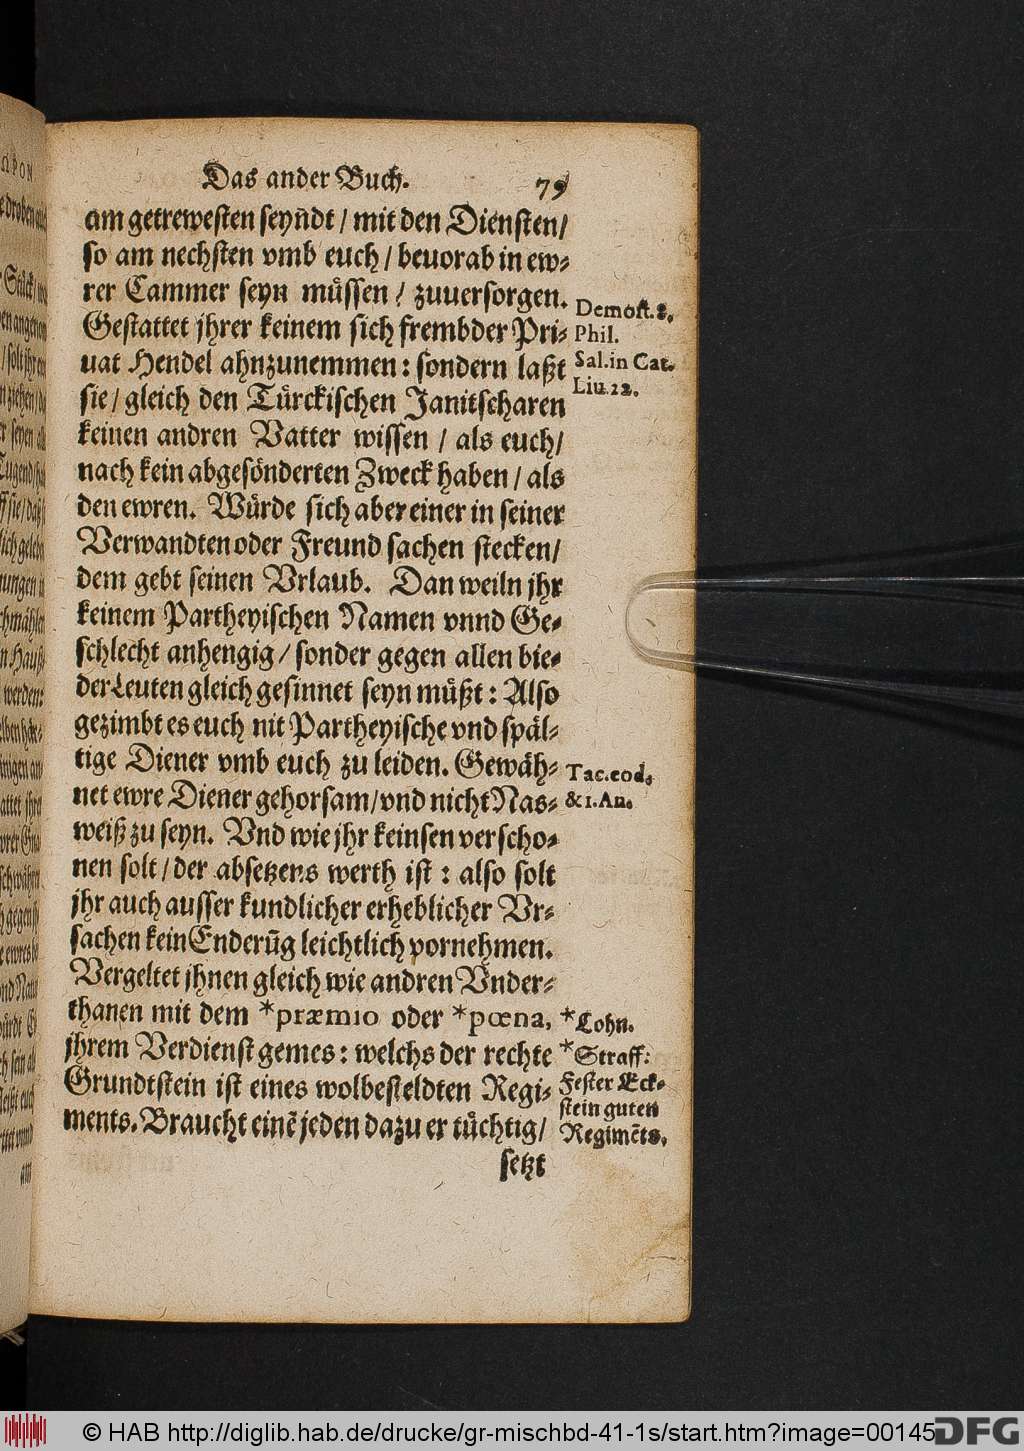 Das ander Buch. 79
am getrewesten seyñdt / mit den Diensten/
so am nechsten vmb euch / beuorab in ew⸗
rer Cammer seyn müssen / zuuersorgen.
Gestattet jhrer keinem sich frembder Pri⸗
uat Hendel ahnzunemmen: sondern laßt
sie / gleich den Türckischen Janitscharen
keinen andren Vatter wissen / als euch/
nach kein abgesönderten Zweck haben / als
den ewren. Würde sich aber einer in seiner
Verwandten oder Freund sachen stecken/
dem gebt seinen Vrlaub. Dan weiln jhr
keinem Partheyischen Namen vnnd Ge⸗
schlecht anhengig / sonder gegen allen bie⸗
derLeuten gleich gesinnet seyn müßt: Also
gezimbt es euch nit Partheyische vnd späl⸗
tige Diener vmb euch zu leiden. Gewäh⸗
net ewre Diener gehorsam/vnd nicht Nas⸗
weiß zu seyn. Vnd wie jhr keinsen verscho⸗
nen solt / der absetzens werth ist : also solt
jhr auch ausser kundlicher erheblicher Vr⸗
sachen kein Enderũg leichtlich vornehmen.
Vergeltet jhnen gleich wie andren Vnder⸗
thanen mit dem *præmio oder *pœna,
jhrem Verdienst gemes: welchs der rechte
Grundtstein ist eines wolbesteldten Regi⸗
ments. Braucht einẽ jeden dazu er tüchtig/
setzt
Demost. 8.
Phil.
Sal. in Cat.
Liu. 22.
Tac. eod.
& 1. An.
*Lohn.
*Straff:
Fester Eck⸗
stein guten
Regimẽts.
am
© HAB http://diglib.hab.de/drucke/gr-mischbd-41-1s/start.htm?image=00145
DFG